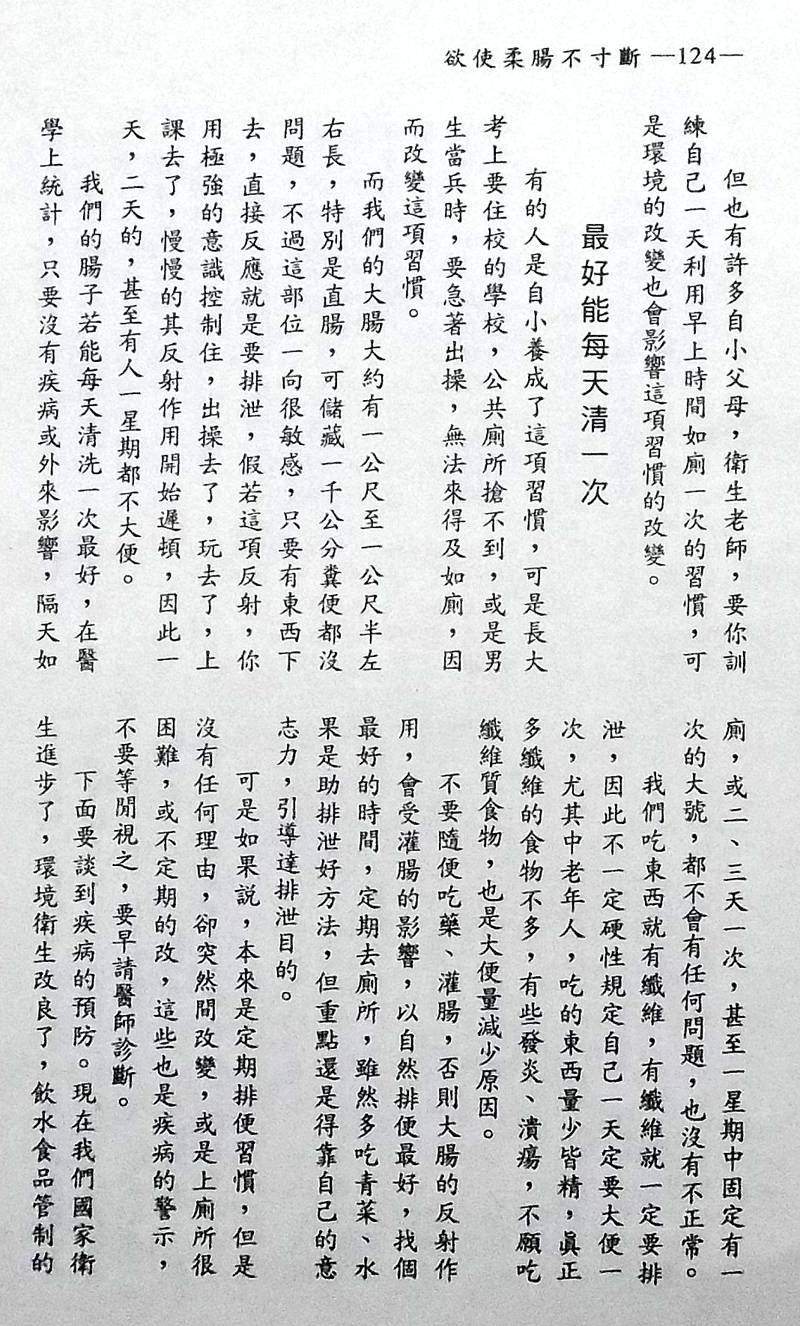 欲使柔腸不寸斷 —124—
但也有許多自小父母，衛生老師，要你訓
練自己一天利用早上時間如廁一次的習慣，可
是環境的改變也會影響這項習慣的改變。
最好能每天清一次
有的人是自小養成了這項習慣，可是長大
考上要住校的學校，公共廁所搶不到，或是男
生當兵時，要急著出操，無法來得及如廁，因
而改變這項習慣。
而我們的大腸大約有一公尺至一公尺半左
右長，特別是直腸，可儲藏一千公分糞便都沒
問題，不過這部位一向很敏感，只要有東西下
去，直接反應就是要排泄，假若這項反射，你
用極強的意識控制住，出操去了，玩去了，上
課去了，慢慢的其反射作用開始遲頓，因此一
天，二天的，甚至有人一星期都不大便。
我們的腸子若能每天清洗一次最好，在醫
學上統計，只要沒有疾病或外來影響，隔天如
廁，或二、三天一次，甚至一星期中固定有一
次的大號，都不會有任何問題，也沒有不正常。
我們吃東西就有纖維，有纖維就一定要排
泄，因此不一定硬性規定自己一天定要大便一
次，尤其中老年人，吃的東西量少皆精，真正
多纖維的食物不多，有些發炎、潰瘍，不願吃
纖維質食物，也是大便量減少原因。
不要隨便吃藥、灌腸，否則大腸的反射作
用，會受灌腸的影響，以自然排便最好，找個
最好的時間，定期去廁所，雖然多吃青菜、水
果是助排泄好方法，但重點還是得靠自己的意
志力，引導達排泄目的。
可是如果說，本來是定期排便習慣，但是
沒有任何理由，卻突然間改變，或是上廁所很
困難，或不定期的改，這些也是疾病的警示，
不要等閒視之，要早請醫師診斷。
下面要談到疾病的預防。現在我們國家衛
生進步了，環境衛生改良了，飲水食品管制的